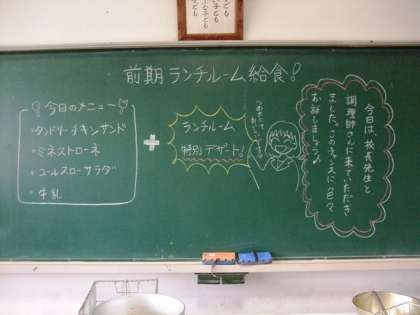 前期ランチルーム給食!
今日のメニュー
・タンドリーチキンサンド
・ミネストローネ
・コールスローサラダ
・牛乳
+
ランチルーム
特別デザート!
今日は、校長先生と
調理師さんに来ていただき
ました。このチャンスに、色々
お話しましょう♪